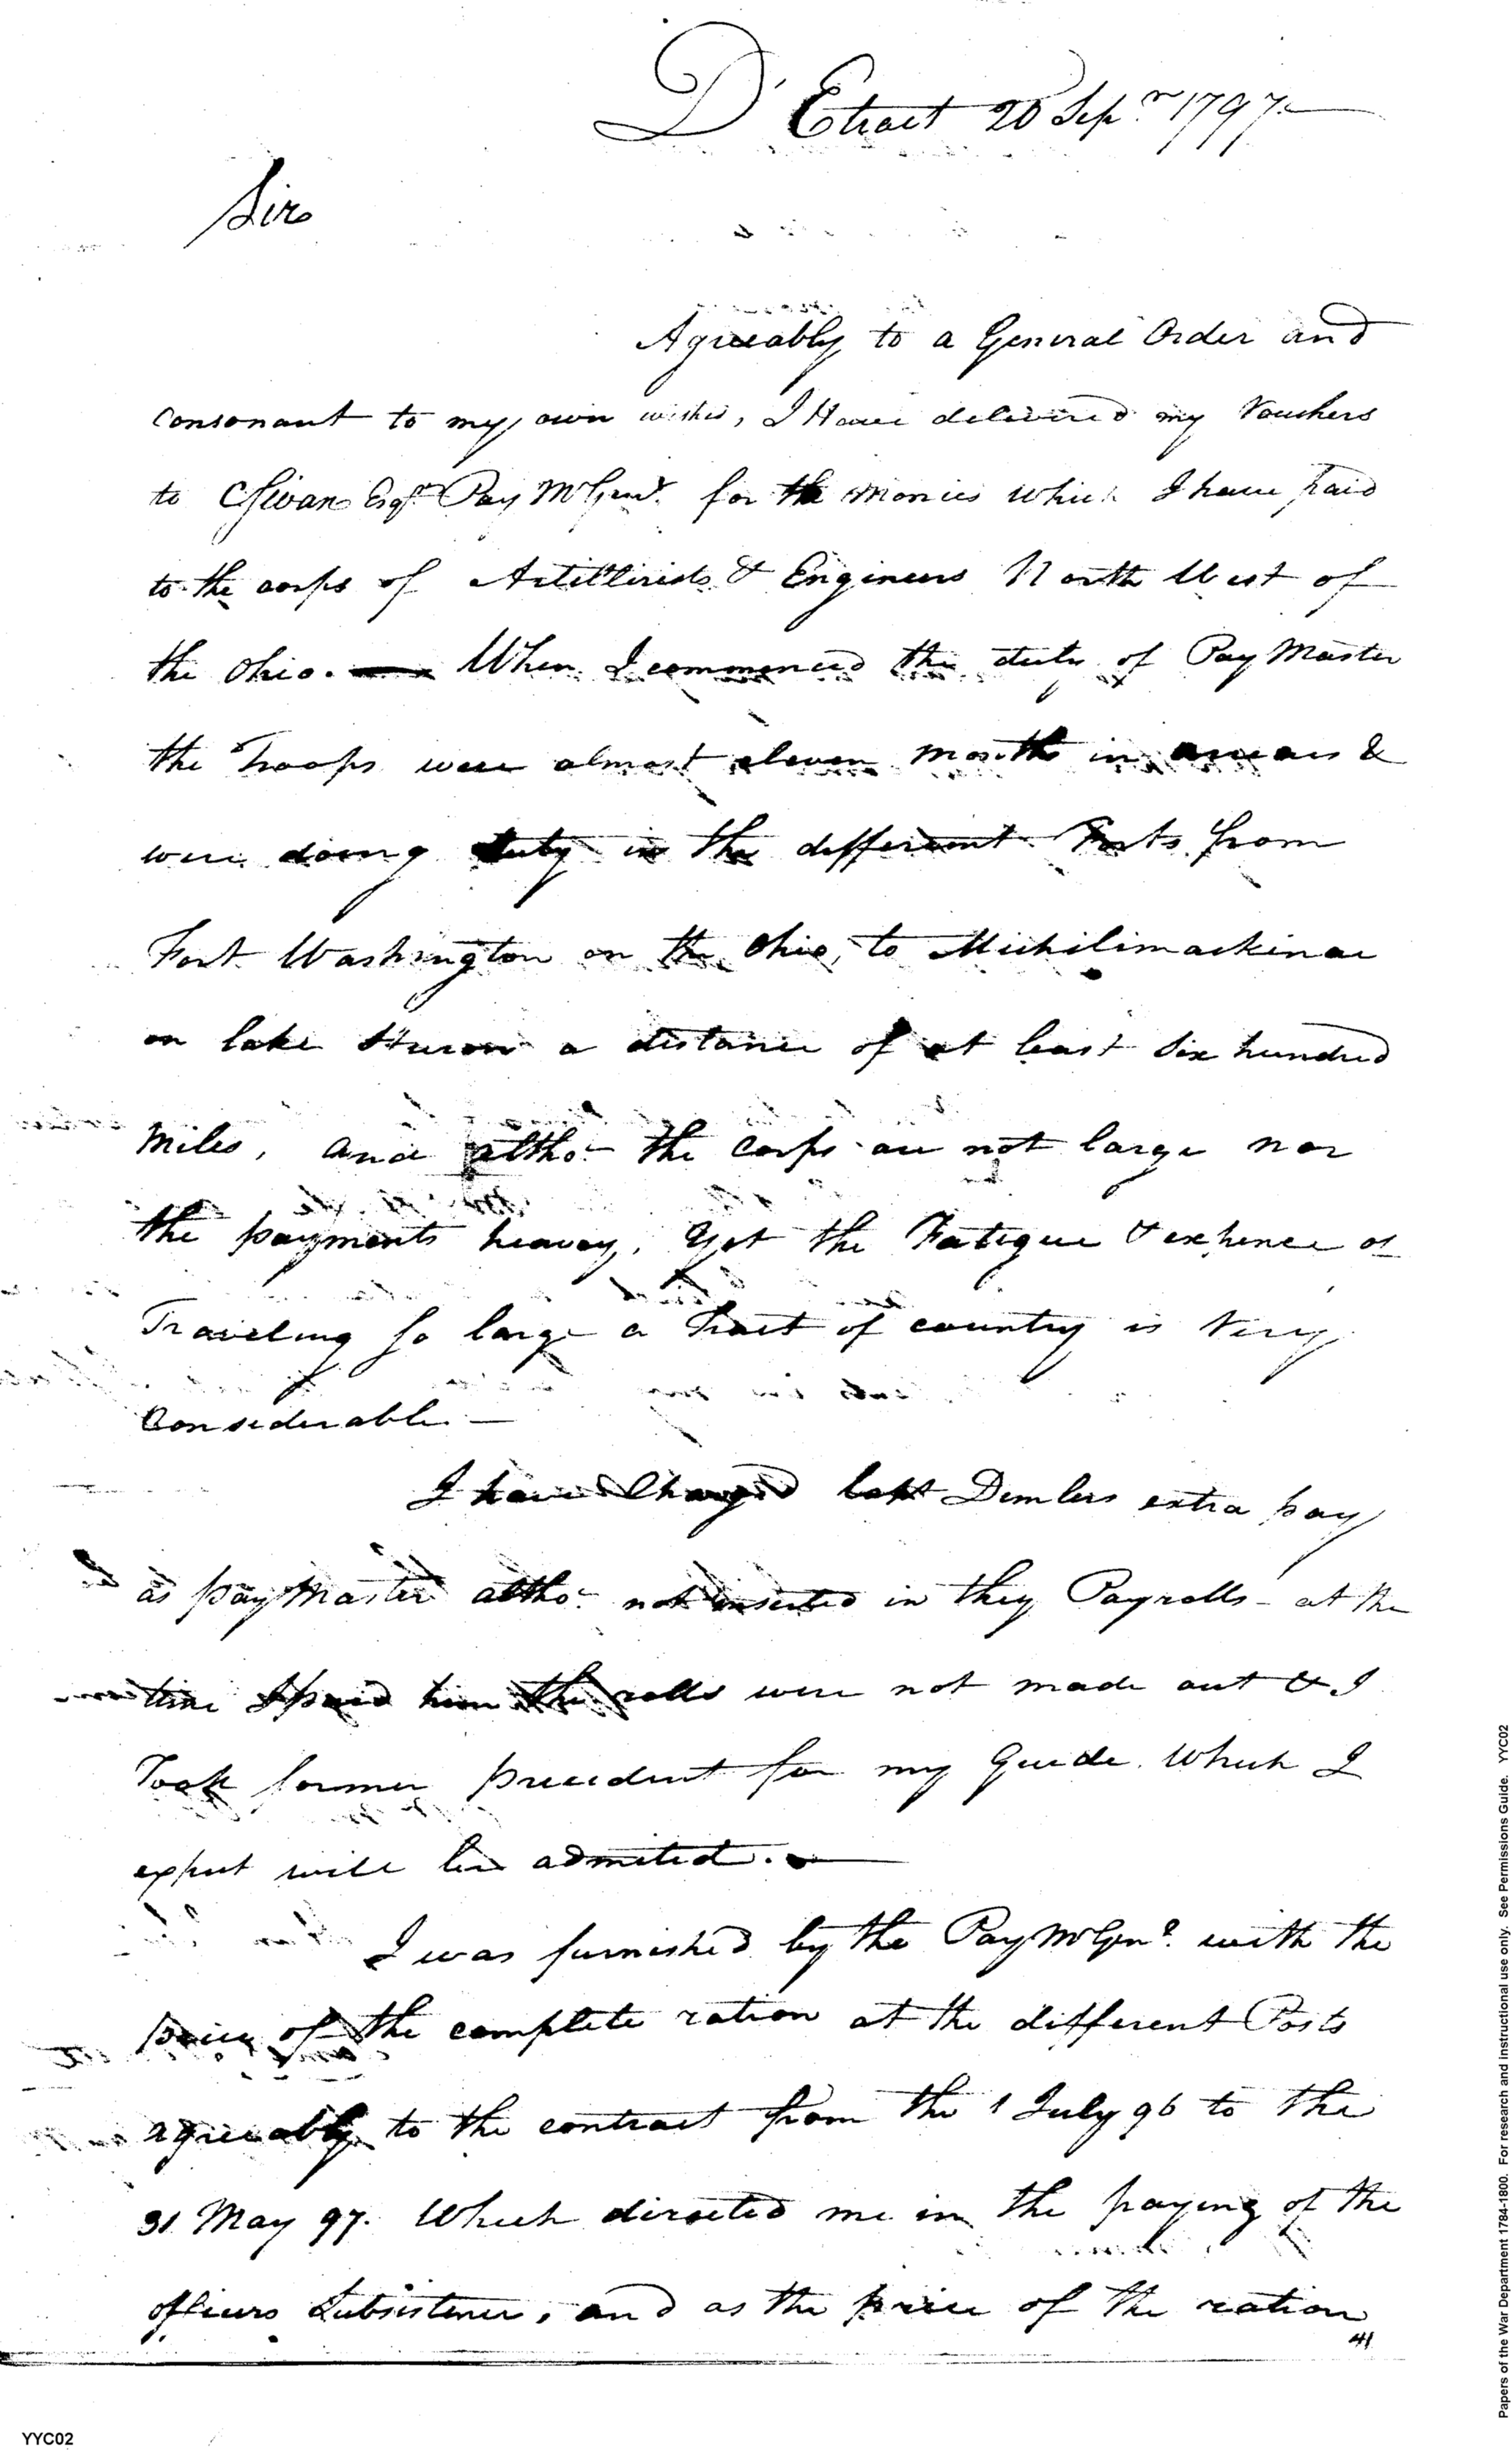 D'Etroit 20 Sepr 1797.
Sir
Agreeably to a General Order and
consonant to my own wishes, I Have delivered my Vouchers
to C Swan Esqr. Pay M Genl. for the monies which I have paid
to the corps of Artillerists & Engineers North West of
the Ohio. — When I commenced the duty of Pay Master
the Troops were almost eleven months in arrears &
were doing duty in the different Forts from
Fort Washington on the Ohio, to Michilimackinac
on lake Huron a distance of at least Six hundred
Miles, and altho- the corps are not large nor
the payments heavey, yet the Fatigue & expence of
Traveling so large a Tract of country is Very
Considerable —
I have Charged Capt Demlers extra pay
as pay Master altho- not inserted in they Payrolls - at the
time I paid him the rolls were not made out & I
Took former precedent for my Guide. Which I
expect will be admited. —
I was furnished by the Pay M Genl. with the
price of the complete ration at the different Posts
agreeably to the contract from the 1 July 96 to the
31 May 97. Which directed me in the paying of the
officers Subsistence, and as the price of the ration
41
YYC02
Papers of the War Department 1784-1800. For research and instructional use only. See Permissions Guide. YYC02